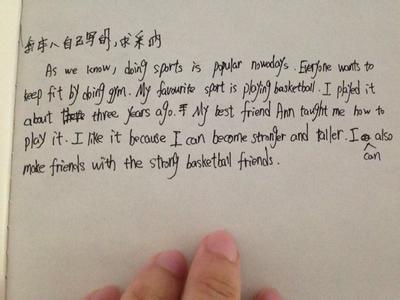 本人自己写的,求采纳
As we know, doing sports is popular nowadays. Everyone wants to
keep fit by doing gym. My favourite sport is playing basketball. I played it
about three years ago. My best friend Ann taught me how to
play it. I like it because I can become stronger and taller. I can also
make friends with the strong basketball friends.